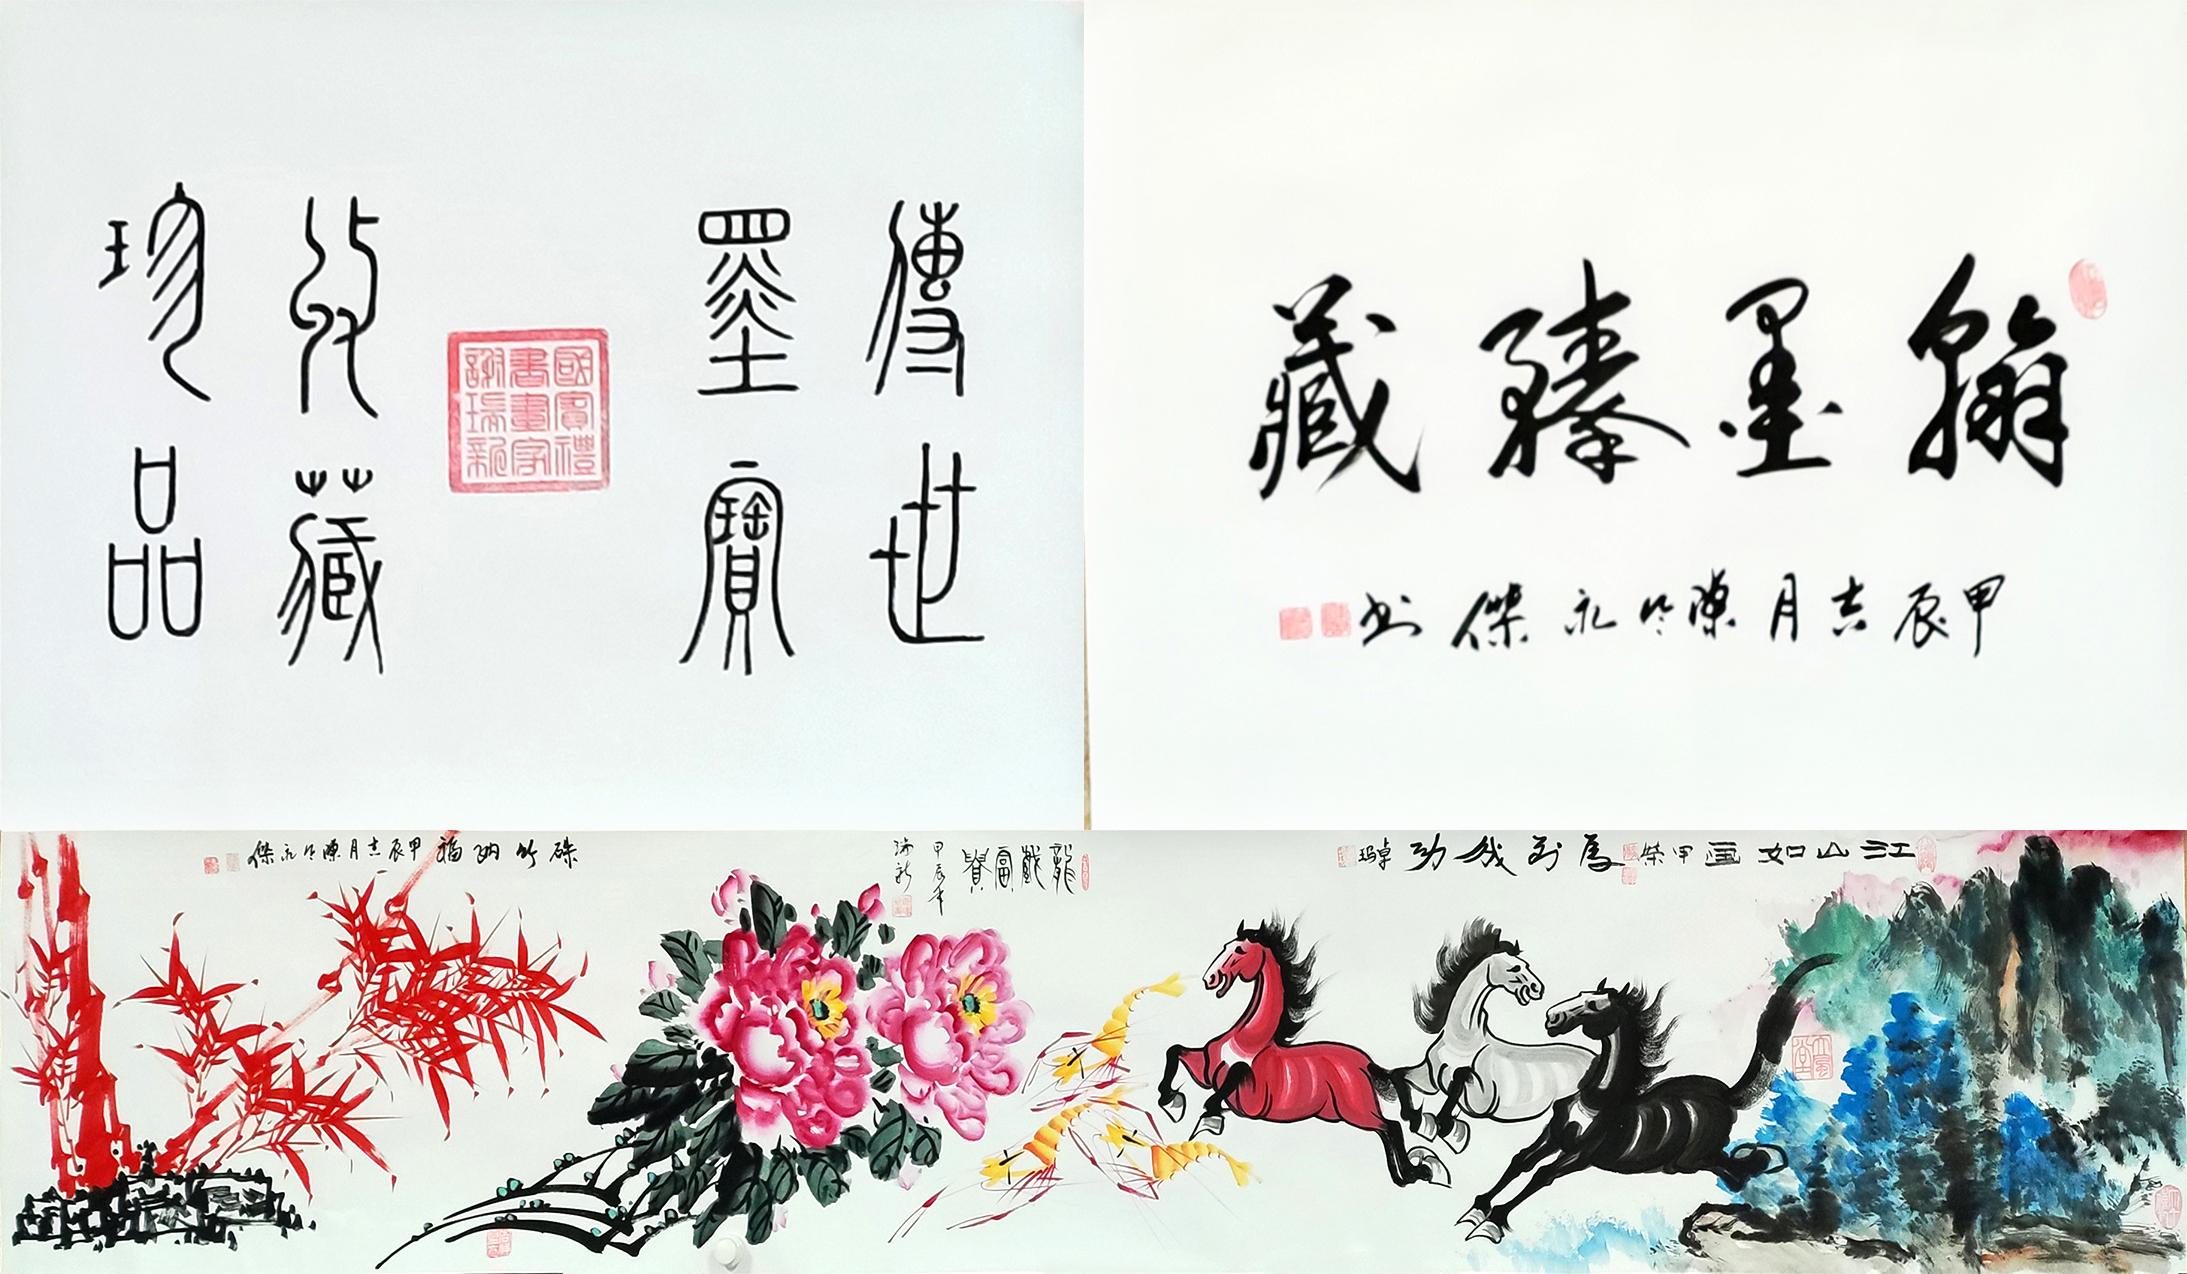 傳世
墨寶
國賓禮
書畫家
謝瑞新
收藏
珍品
翰墨臻藏
甲辰吉月陳永傑书
江山如画 甲榮
馬到成功 卓玛
龍戲富貴
甲辰年
瑞新
硃竹納福 甲辰吉月陳永傑
大風堂